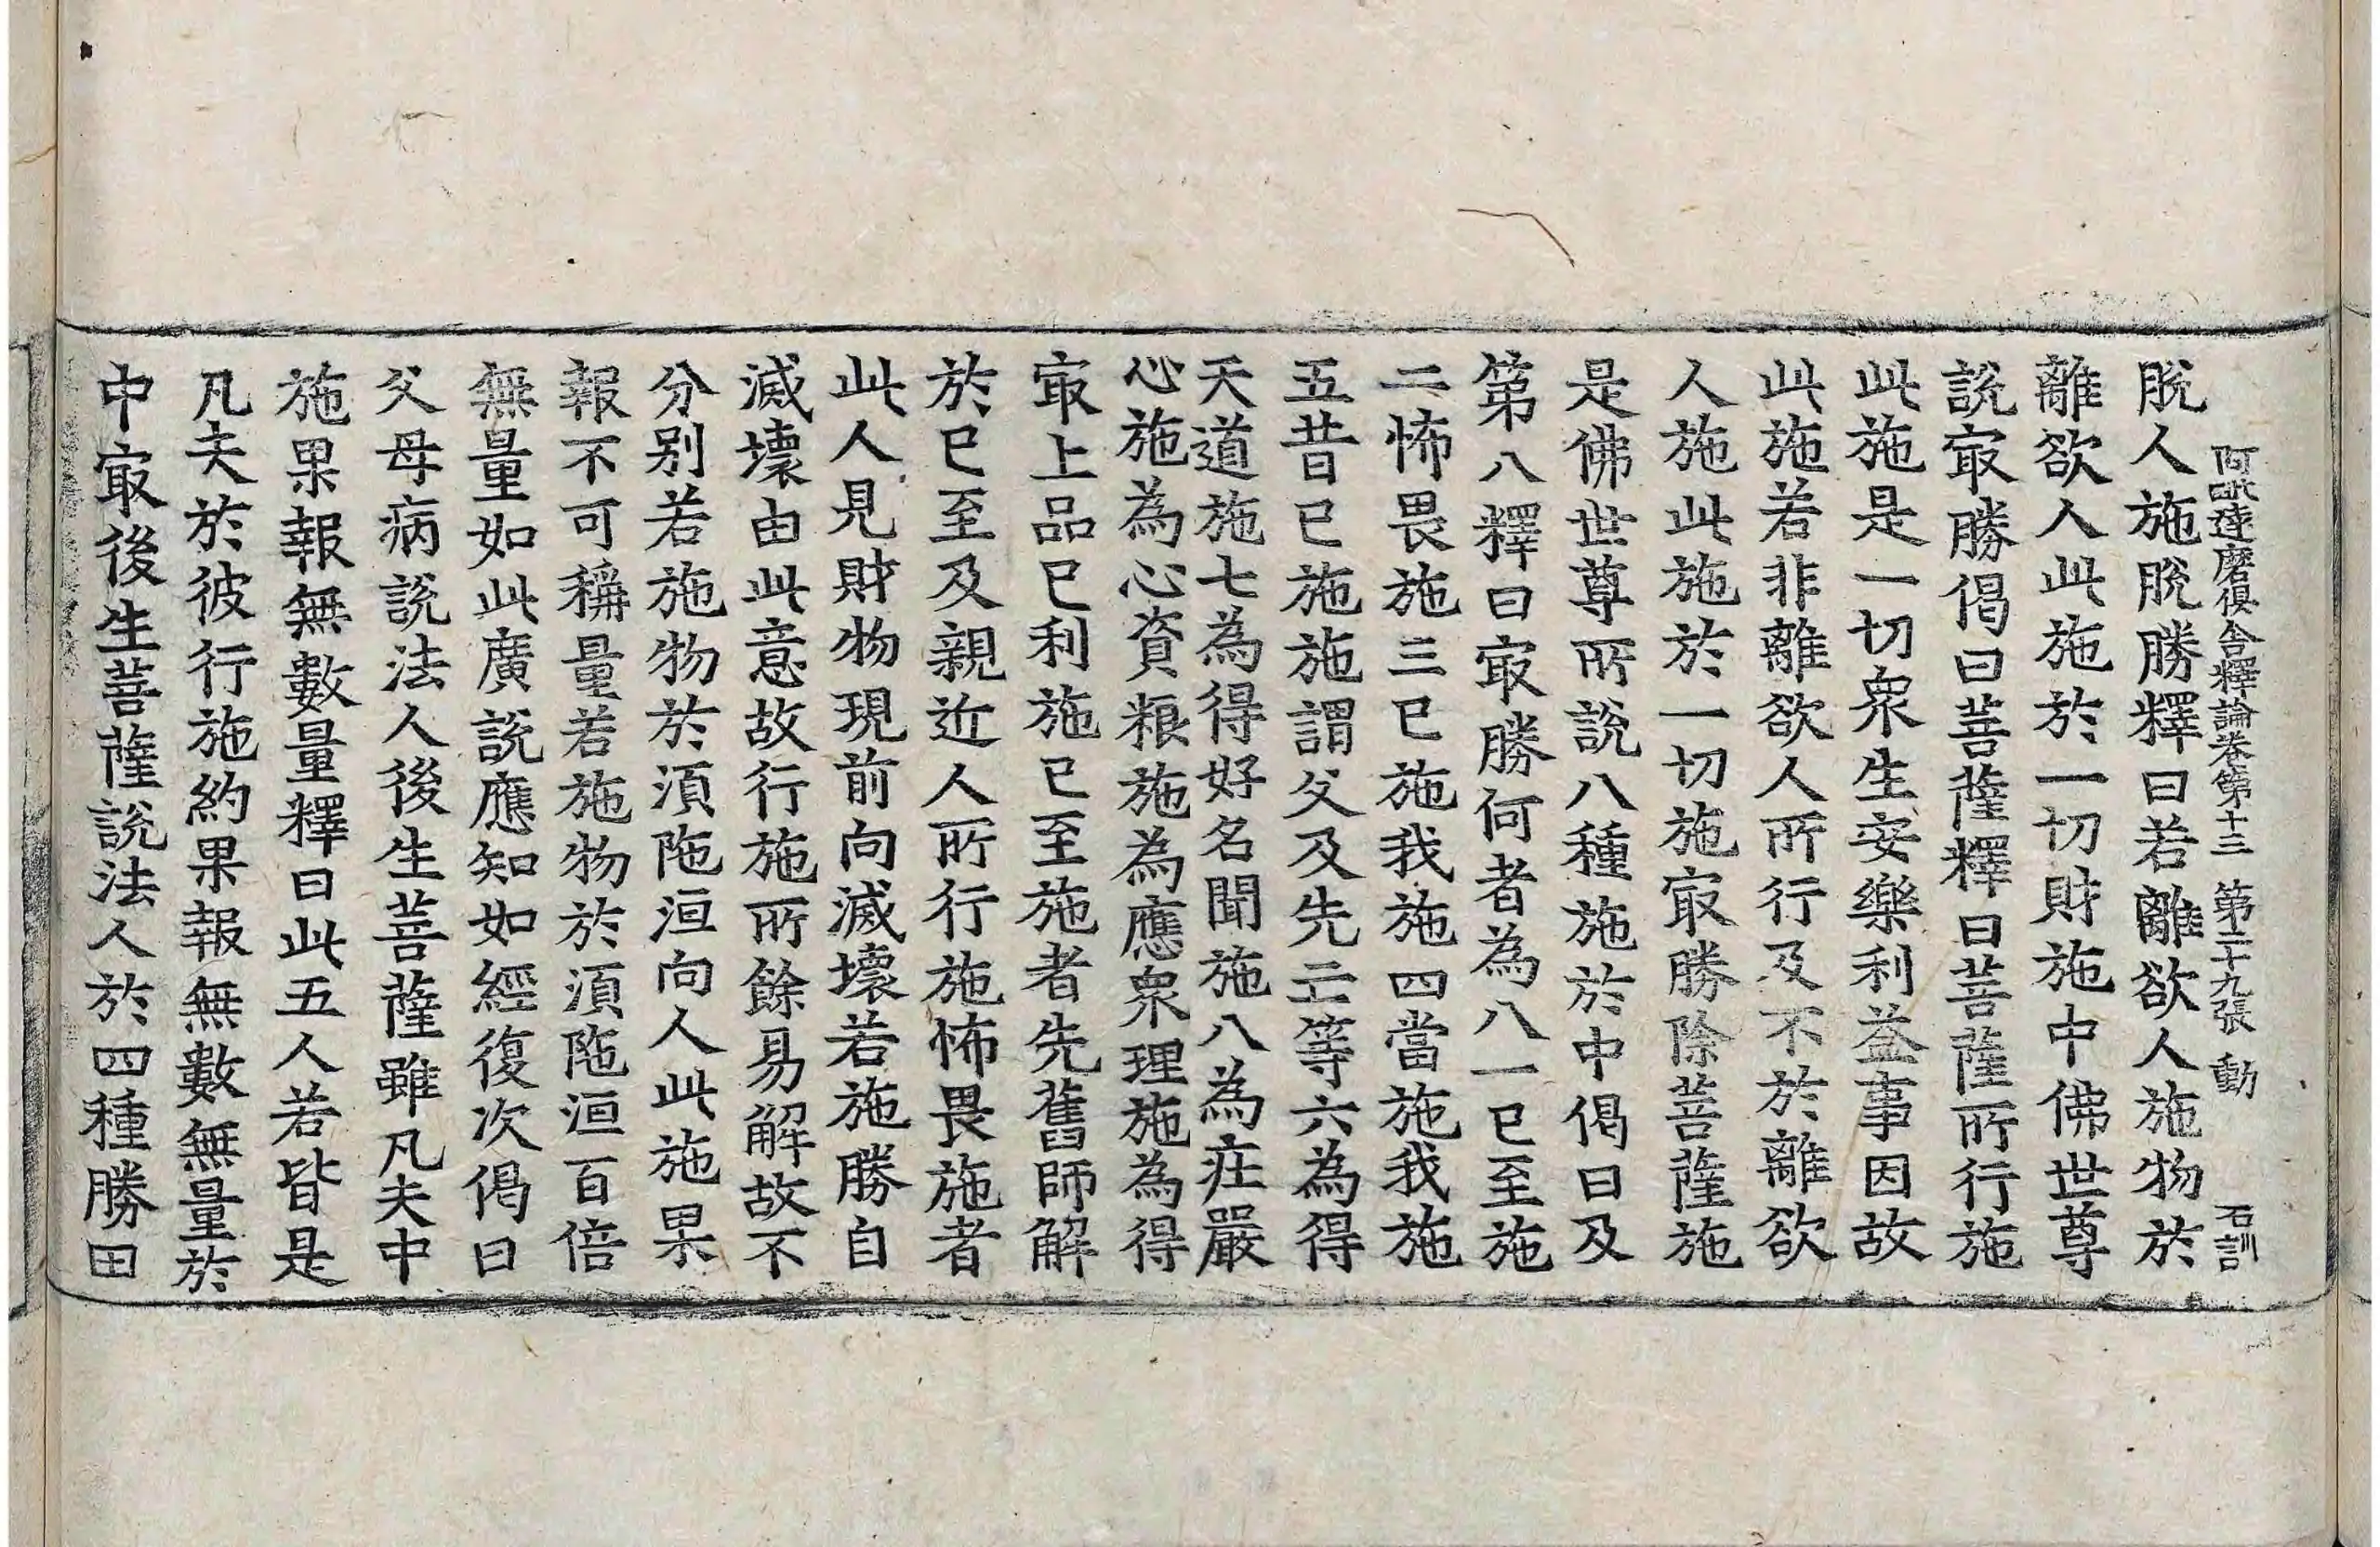 阿毗達磨俱舍釋論卷第十三 第二十九張 動 石訓
脫人施脫勝釋曰若離欲人施物於
離欲人此施於一切財施中佛世尊
說㝡勝偈曰菩薩釋曰菩薩所行施
此施是一切衆生安樂利益事因故
此施若非離欲人所行及不於離欲
人施此施於一切施㝡勝除菩薩施
是佛世尊所說八種施於中偈曰及
第八釋曰㝡勝何者為八一已至施
二怖畏施三已施我施四當施我施
五昔已施施謂父及先亡等六為得
天道施七為得好名聞施八為莊嚴
心施為心資粮施為應衆理施為得
㝡上品已利施已至施者先舊師解
於已至及親近人所行施怖畏施者
此人見財物現前向滅壞若施勝自
滅壞由此意故行施所餘易解故不
分別若施物於湏陁洹向人此施果
報不可稱量若施物於湏陁洹百倍
無量如此廣說應知如經復次偈曰
父母病說法人後生菩薩雖凡夫中
施果報無數量釋曰此五人若皆是
凡夫於彼行施約果報無數無量於
中㝡後生菩薩說法人於四種勝田